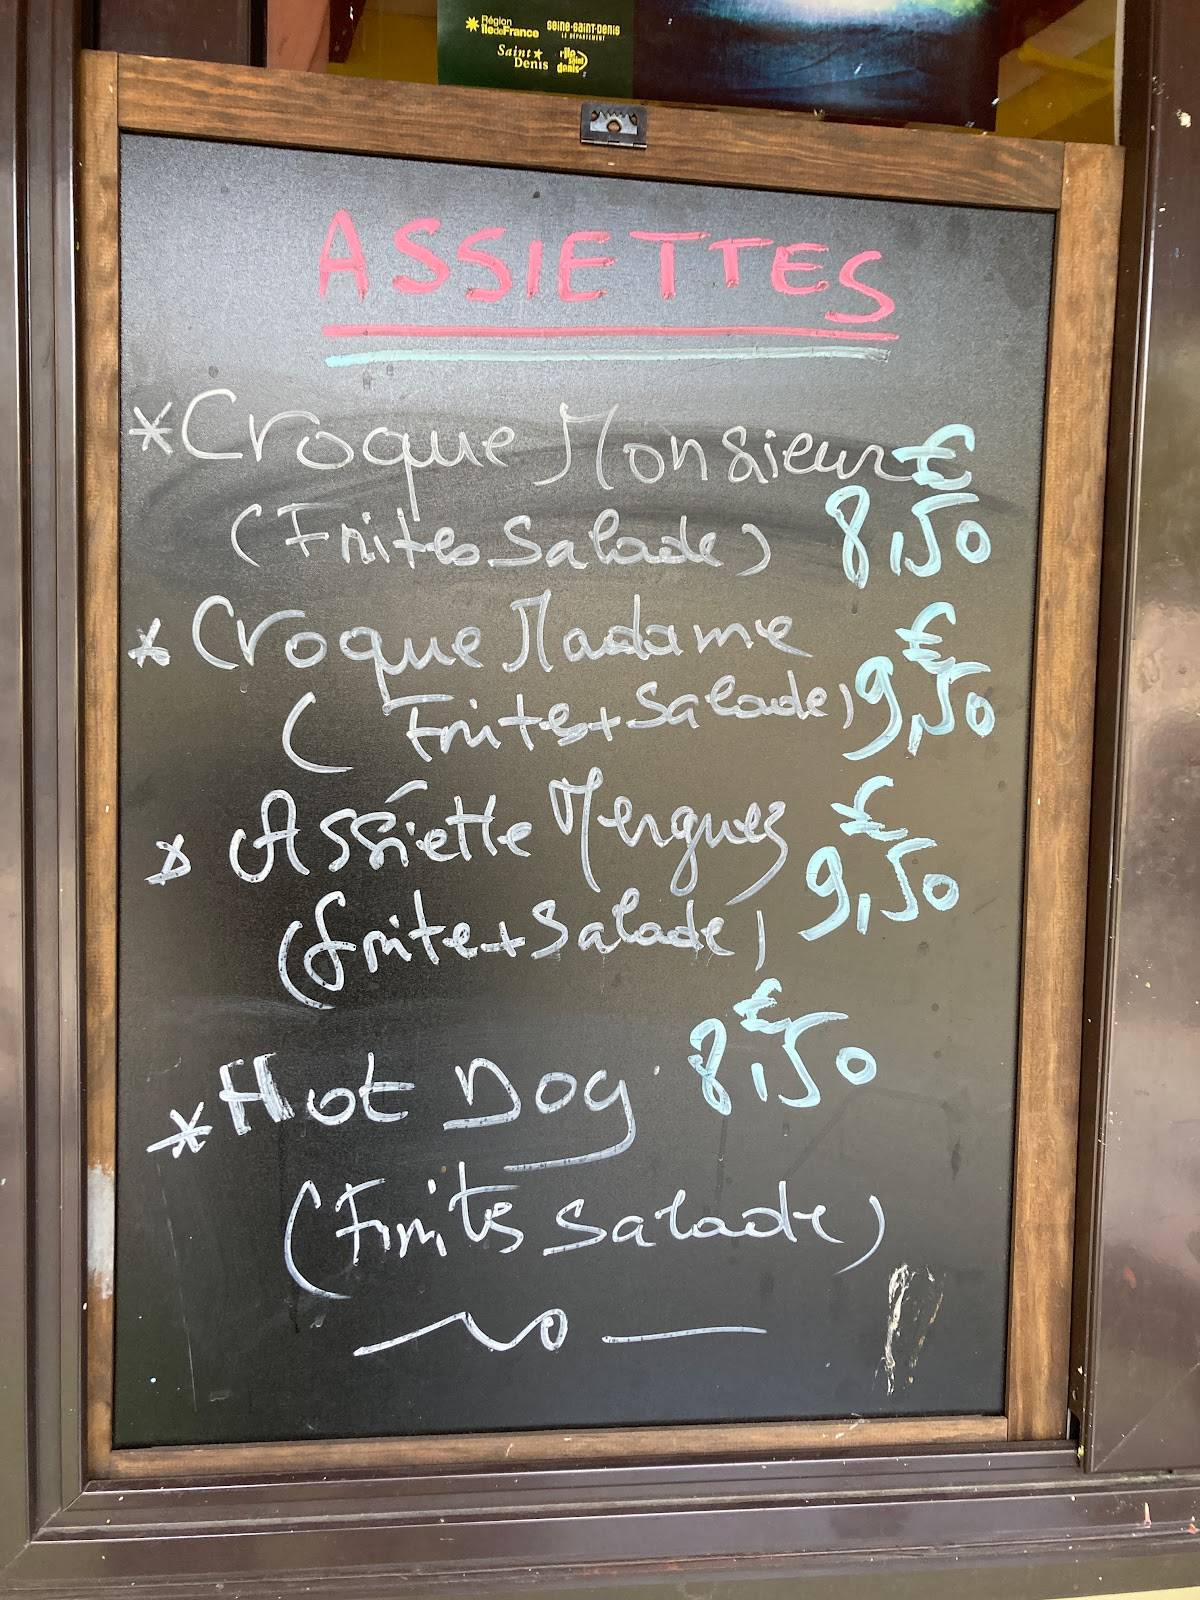 Région
îledeFrance
seine-saint-denis
LE DÉPARTEMENT
Saint
Denis
l'île
saint
denis
ASSIETTES
*Croque Monsieur €
(Frites Salade) 8,50
* Croque Madame €
(Frites+Salade) 9,50
* Assiette Merguez €
(frite+Salade) 9,50
€
*Hot Dog 8,50
(Frites Salade)